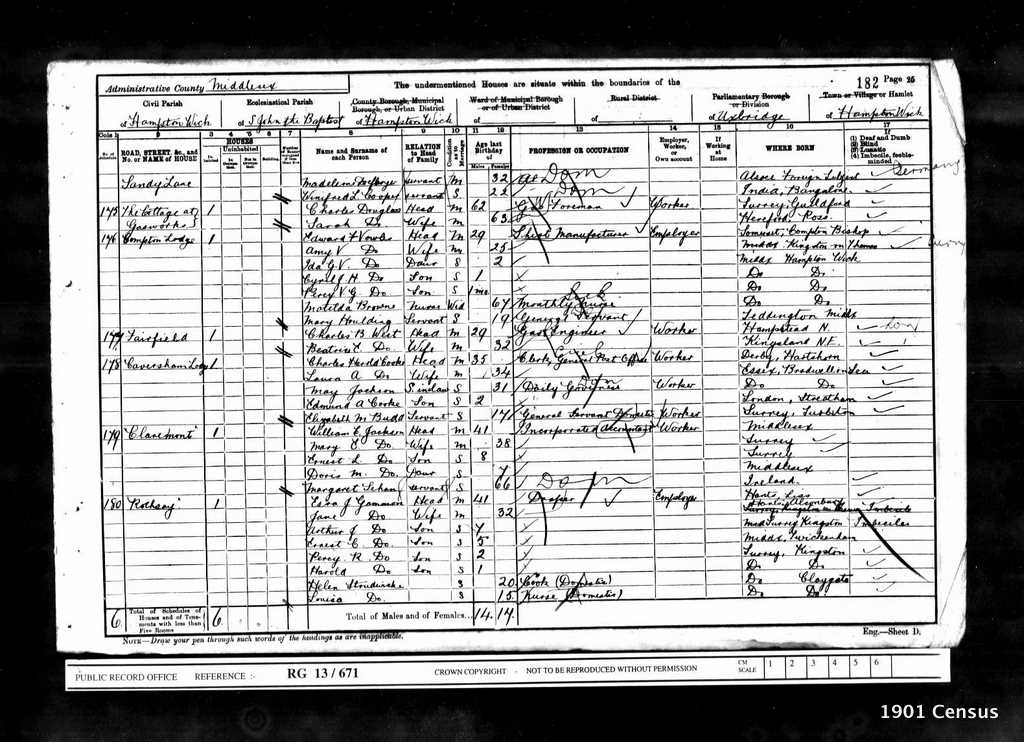 Administrative County Middlesex
The undermentioned Houses are situate within the boundaries of the
182 Page 25
Civil Parish
Ecclesiastical Parish
County Borough, Municipal Borough, or Urban District
Ward of Municipal Borough or of Urban District
Rural District
Parliamentary Borough or Division
Town or Village or Hamlet
of Hampton Wick
of S John the Baptist
of Hampton Wick
of
of
of Uxbridge
of Hampton Wick
ROAD, STREET, &c., and No. or NAME of HOUSE
HOUSES
Uninhabited
Name and Surname of each Person
RELATION to Head of Family
Condition as to Marriage
Age last Birthday of
Males Females
PROFESSION OR OCCUPATION
Employer, Worker, or Own account
If Working at Home
WHERE BORN
If (1) Deaf and Dumb (2) Blind (3) Lunatic (4) Imbecile, feeble-minded
Sandy Lane Servant M 32 Dom Germany
Winifred L Cooper Servant S 22 Dom India, Bangalore
175 The Cottage at Gasworks 1 Charles Douglass Head M 62 Gas Foreman Worker Surrey, Guildford
Sarah Do Wife 63 Hereford, Ross
176 Compton Lodge 1 Edward F Vowles Head M 29 Shirt Manufacturer Employer Somerset, Compton Bishop
Amy V Do Wife M 25 Middx Kingston on Thames
Ida G V Do Daur S 2 Middx Hampton Wick
Cyril H Do Son S 1 Do Do
Percy V G Do Son S 1 mo Do Do
Matilda Browne Nurse Wid 67 Monthly Nurse Do Do
Mary Houlding Servant S 19 General Servant Teddington Middx
177 Fairfield 1 Charles B West Head M 29 Gas Engineer Worker Hampstead N.
Beatrice C Do Wife M 32 Kingsland N.E.
178 Caversham Lodge 1 Charles Harold Cooke Head M 35 Clerk, General Post Office Worker Derby, Hartshorn
Laura A Do Wife M 34 Essex, Bradwell on Sea
May Jackson S in law S 31 Daily Governess Worker Do Do
Edmund A Cooke Son S 2 London, Streatham
Elizabeth M Budd Servant S 17 General Servant Domestic Worker Surrey, Surbiton
179 'Claremont' 1 William E Jackson Head M 41 Incorporated Accountant Worker Middlesex
Mary E Do Wife M 38 Surrey
Ernest L Do Son S 8 Surrey
Doris M Do Daur S 7 Middlesex
Margaret Servant S 66 Dom Ireland
180 'Rothsay' 1 Ezra J Gammon Head M 41 Draper Employer Hants, Liss
Jane Do Wife M 32
Arthur J Do Son S 7 Surrey Kingston Imbecile
Ernest C Do Son S 5 Middx, Twickenham
Percy R Do Son S 2 Surrey, Kingston
Harold Do Son S 1 Do Do
Helen S 20 Cook (Domestic) Do Claygate
Louisa Do S 15 Nurse (Domestic) Do Do
6 Total of Schedules of Houses and of Tenements with less than Five Rooms 6
Total of Males and of Females... 14 17
NOTE—Draw your pen through such words of the headings as are inapplicable.
Eng.—Sheet D.
PUBLIC RECORD OFFICE REFERENCE :- RG 13/671 CROWN COPYRIGHT - NOT TO BE REPRODUCED WITHOUT PERMISSION CM SCALE 1 2 3 4 5 6
1901 Census